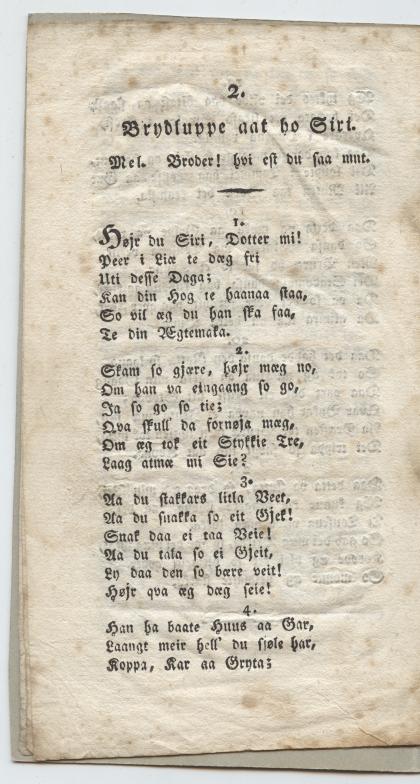 2.
Brydluppe aat ho Siri.
Mel. Broder! hvi est du saa mut.
1.
Højr du Siri, Dotter mi!
Peer i Liæ te dæg fri
Uti desse Daga;
Kan din Hog te haanaa staa,
So vil æg du han ska faa,
Te din Ægtemaka.
2.
Skam so gjære, højr mæg no,
Om han va eingaang so go,
Ja so go so tie;
Qva skull da fornøja mæg,
Om æg tok eit Stykkie Tre,
Laag atmæ mi Sie?
3.
Aa du stakkars litla Veet,
Aa du snakka so eit Gjek!
Snak daa ei taa Veie!
Aa du tala so ei Gjeit,
Ly daa den so bære veit!
Højr qva æg dæg seie!
4.
Han ha baate Huus aa Gar,
Laangt meir hell' du sjøle har,
Koppa, Kar aa Gryta;